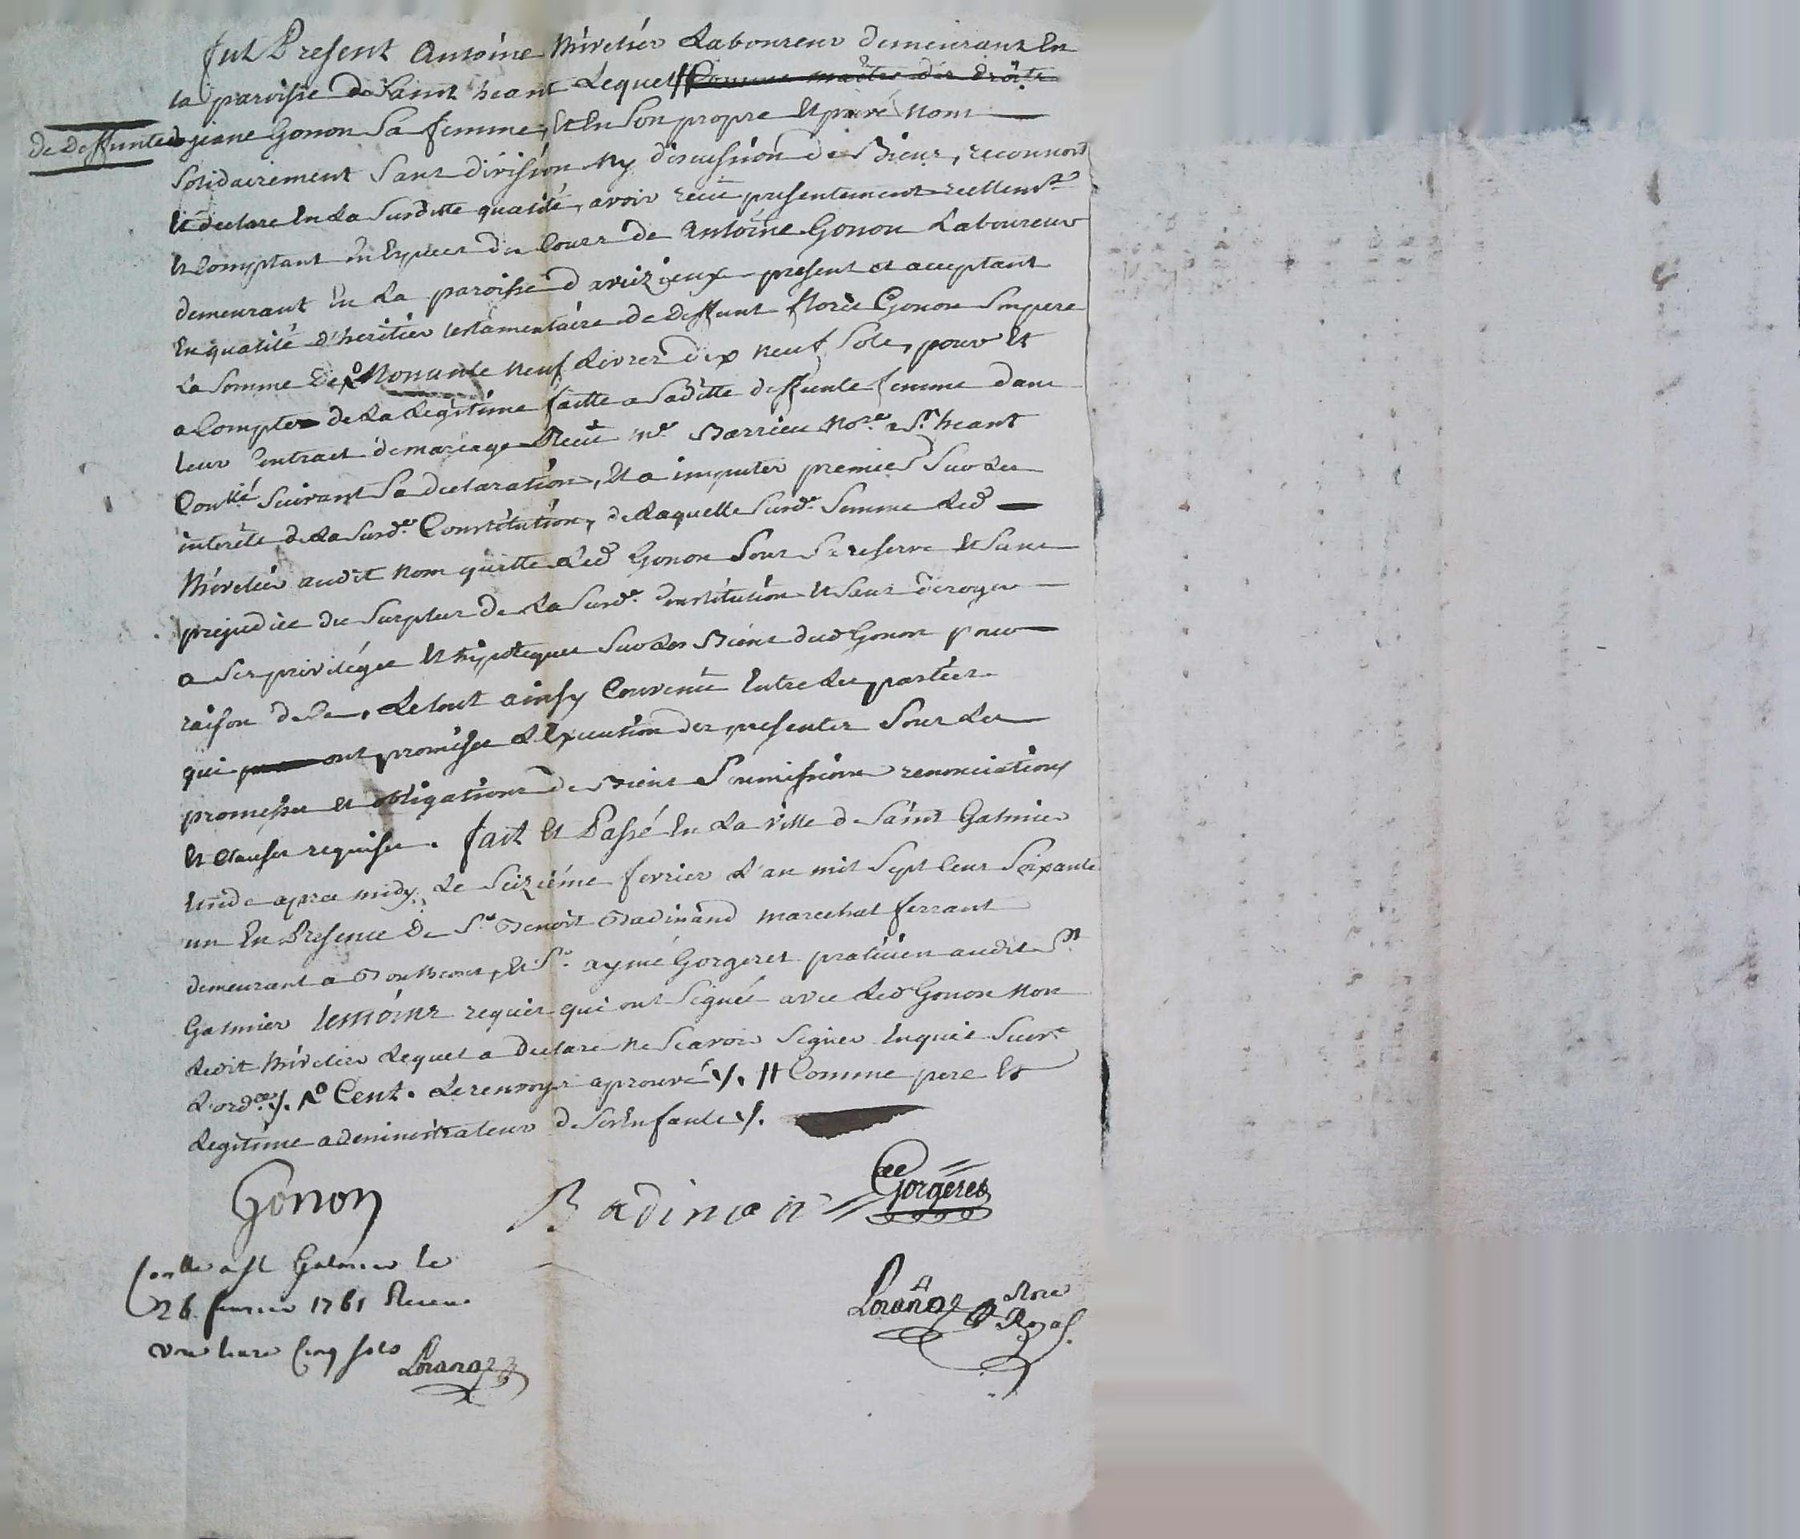 fut Present Antoine Mivelier Laboureur demeurant En
la paroisse de Saint heant Lequel // Comme maitre des droits
de deffunte jeane Gonon Sa femme, Et En Son propre Et privé Nom
Solidairement Sans division Ny discussion de Biens, reconnoit
Et declare En La Surditte qualité, avoir reçu presentement reellemt
Et Comptant En Especes du Cours de Antoine Gonon Laboureur
demeurant En La paroisse d'aveizieux present et acceptant
En qualité d'heritier testamentaire de deffunt floris Gonon Son pere
La Somme De Nonante Neuf Livres dix Neuf Sols, pour Et
a Compte de La Legitime faitte a Saditte deffunte femme dans
leur Contract de mariage Reçu Me Barrieu Nore a St heant
Conllé Suivant Sa declaration, Et a imputer premier Sur Les
interets de La Surde Constitution, de Laquelle Surde Somme Led
Mivelier audit Nom quitte Led Gonon Sous Sa reserve Et Sans
prejudice du Surplus de La Surde Constitution Et Sans deroger
a Ses privileges Et hipoteques Sur Les Biens dud Gonon pour
raison de Ce, Le tout ainsy Convenu Entre Les parties
qui ont promises L'Execution des presentes Sous Les
promesses et obligations de Biens Soumissions renonciations
Et Clauses requises. fait Et Passé En La ville de Saint Galmier
Etude apres midy, Le Seizième fevrier L'an mil Sept Cent Soixante
un En Presence De Sr Benoit Badinand marechal ferrant
demeurant a, Et Sr aymé Gorgeret praticien audit St
Galmier temoins requis qui ont Signés avec Led Gonon Non
Ledit Mivelier Lequel a declaré Ne Scavoir Signer Enquis Suivt
L'ordce /. Cent. Les renvoys aprouvé /. // Comme pere Et
Legitime administrateur de Ses Enfants /.
Gonon Badinan Gorgeret
Conllé a St Galmier le
26 fevrier 1761 Receu
une livre Cinq sols
Lorange
Lorange Nore
Royal